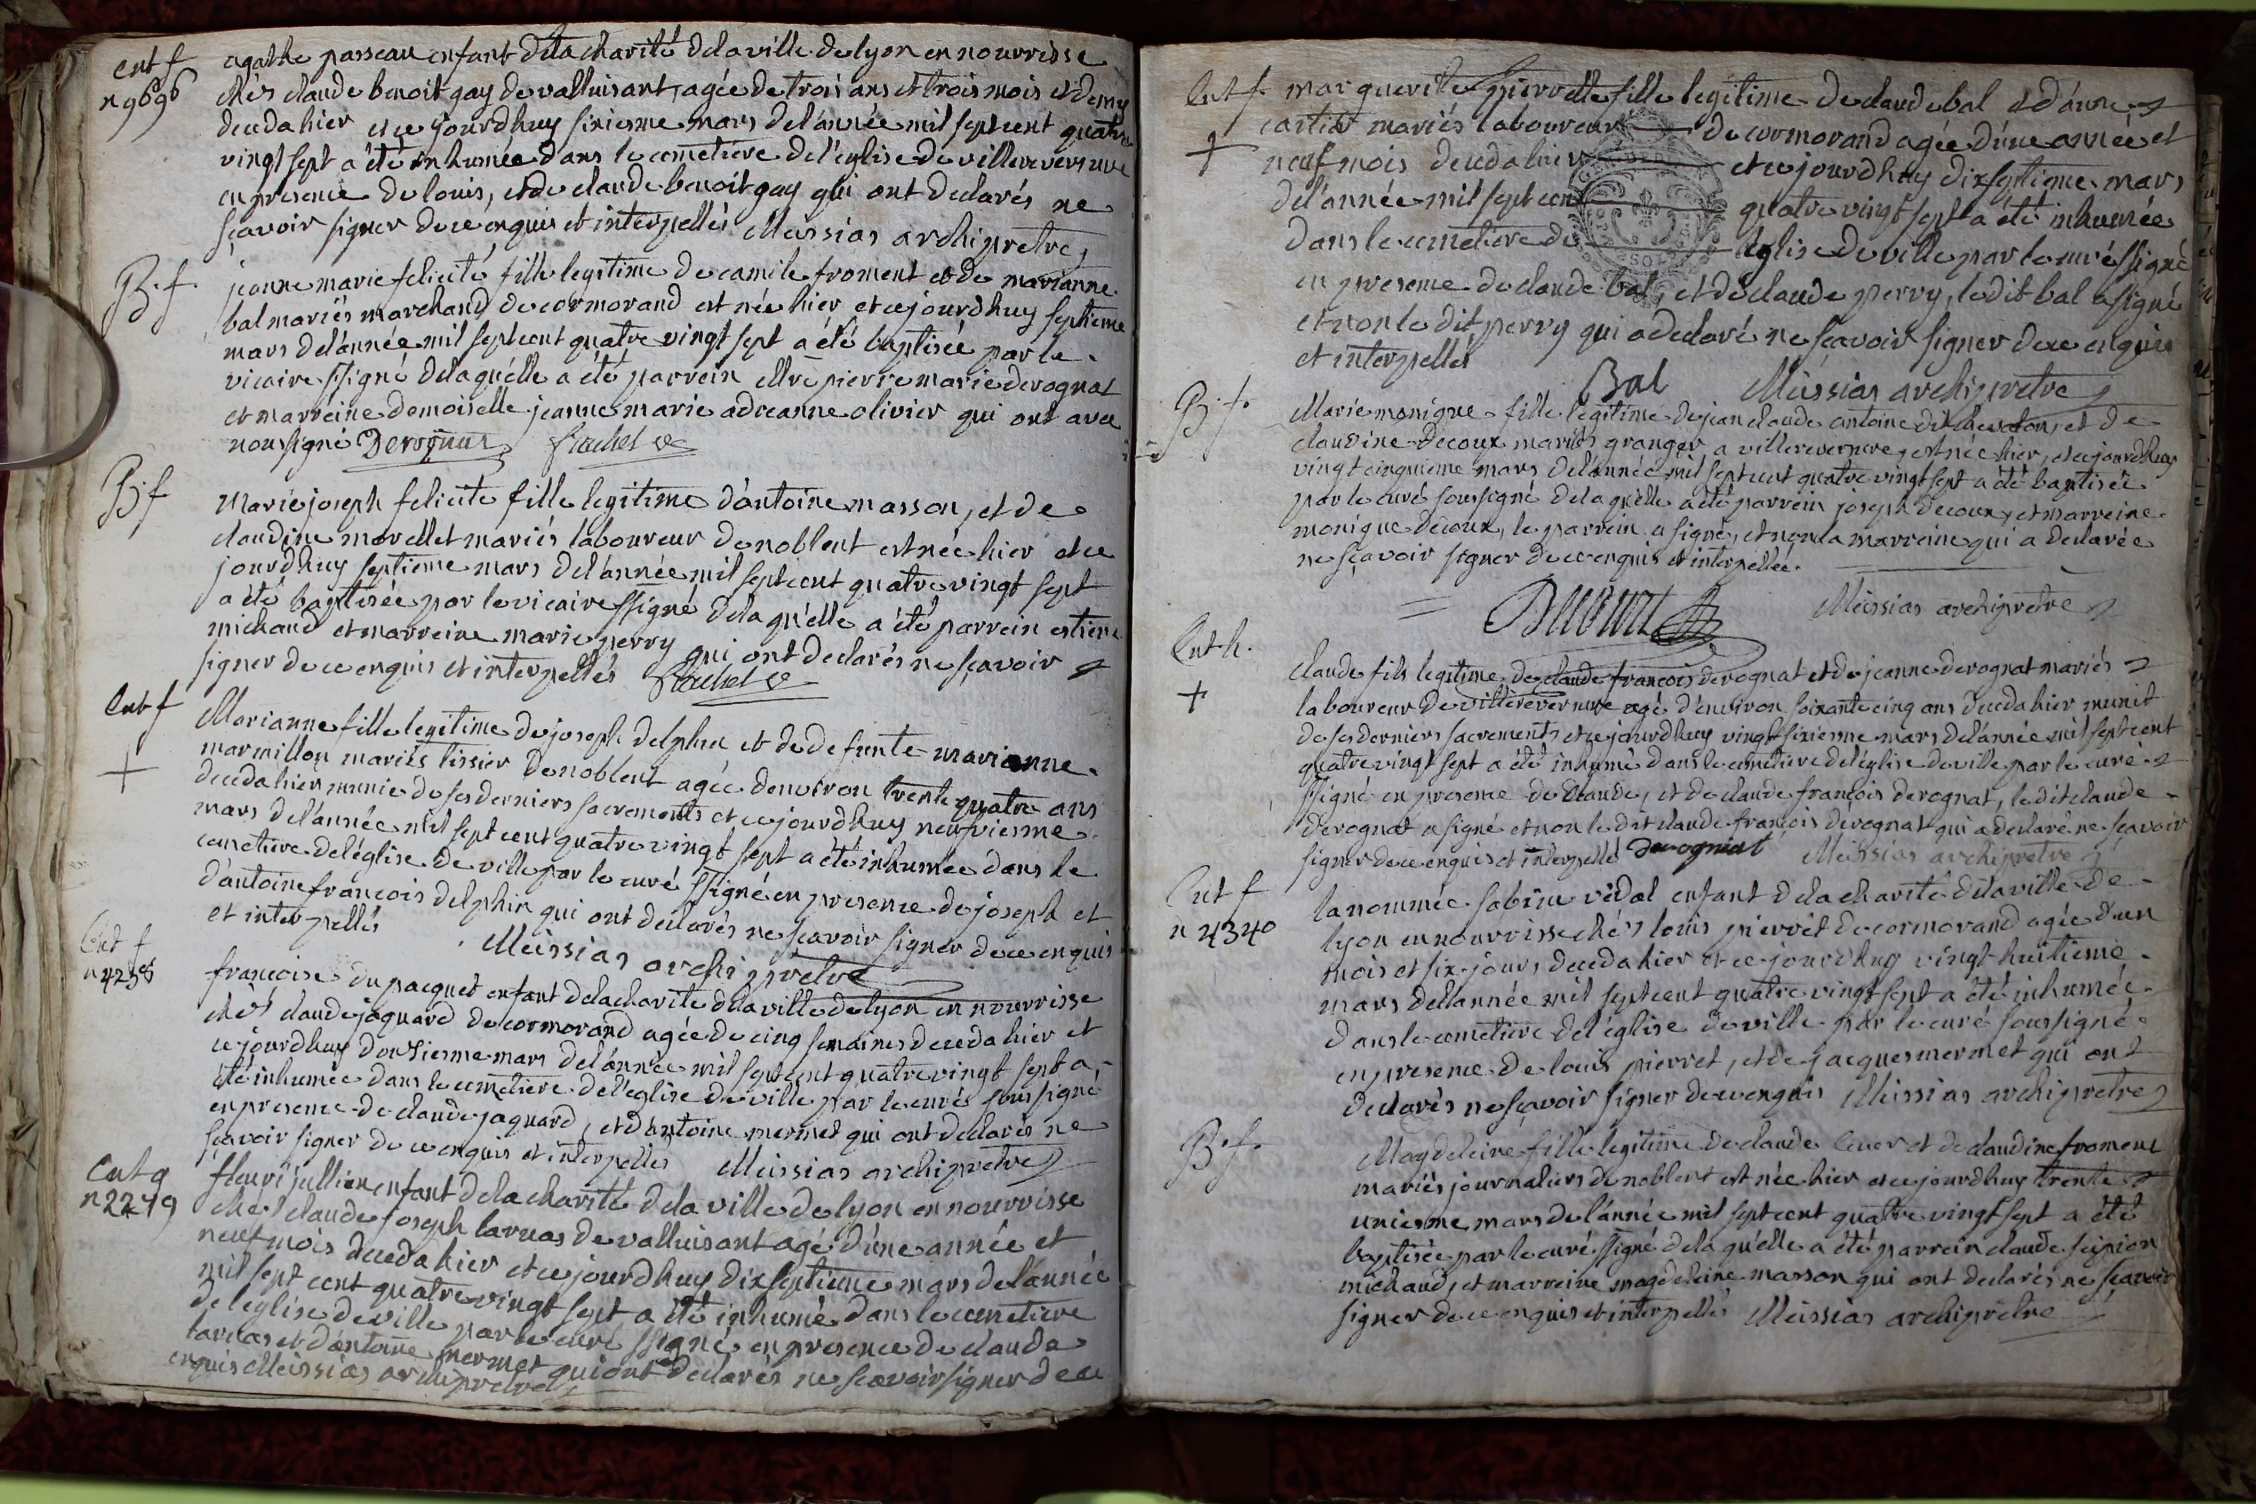 Ent f
n 9696
agathe passeau enfant de la charité dela ville de lyon en nourrisse
chés claude benoit gay de valluisant, agée de trois ans et trois mois et demy
decedahier et ce jourdhuy sixiesme mars del'année mil sept cent quatre
vingt sept a été inhumée dans le cemetiere de l'eglise de villereversure
en presence de louis, et de claude benoit gay qui ont declarés ne
sçavoir signer de ce enquis et interpellés Meissias archipretre
B. f.
jeanne marie felicité fille legitime de camile froment et de marianne
bal mariés marchand de cormorand est née hier, et cejourdhuy septieme
mars del'année mil sept cent quatre vingt sept a été baptisée par le
vicaire ssigné delaquelle a été parrein Mre pierre marie derognat
et marreine demoiselle jeanne marie adreanne olivier qui ont avec
nous signé Derognat
B. f
Marie joseph felicite fille legitime d'antoine masson, et de
claudine morellet mariés laboureur de noblent est née hier et ce
jourdhuy septieme mars del'année mil sept cent quatre vingt sept
a été baptisée par le vicaire ssigné delaqu'elle a été parrein estiene
michaud et marreine marie perry qui ont declarés ne sçavoir
signer de ce enquis et interpellés
Ent f
+
Marianne fille legitime de joseph delphin et de defunte marianne
marmillon mariés tissier de noblent agée denviron trente quatre ans
decedahier munie de ses derniers sacrements et cejourdhuy neufviesme
mars del'année mil sept cent quatre vingt sept a été inhumée dans le
cemetiere del'église de ville par le curé ssigné en presence de joseph et
d'antoine francois delphin qui ont declarés ne sçavoir signer de ce enquis
et interpellés Meissias archipretre
Ent f
n 4238
françoise du pacquet enfant delacharité delaville de lyon en nourrisse
chés claude jaquard de cormorand agée de cinq semaines decedahier et
cejourdhuy douziesme mars del'année mil sept cent quatre vingt sept a
été inhumée dans le cemetiere de l'eglise de ville par le curés soussigné
en presence de claude jaquard, et d'antoine mermet qui ont declarés ne
sçavoir signer de ce enquis et interpellés Meissias archipretre
Ent g
n 2279
fleuri jullien enfant de la charité dela ville de lyon en nourrisse
chés claude joseph laruas de valluisant agé d'une année et
neuf mois decedahier et cejourdhuy dixseptieme mars de l'année
mil sept cent quatre vingt sept a été inhumé dans le cemetiere
de leglise de ville par le curé ssigné en presence de claude
laruas et d'antoine mermet qui ont declarés ne sçavoir signer de ce
enquis Meissias archipretre
Ent f.
+
marguerite pierrette fille legitime de claude bal et d'anne
cartier mariés laboureur de cormorand agée d'une année et
neuf mois decedahier et cejourdhuy dixseptieme mars
del'année mil sept cent quatre vingt sept a été inhumée
dans le cemetiere de l'église de ville par le curé ssigné
en presence de claude bal, et de claude perry, ledit bal a signé
et non le dit perry qui a declaré ne sçavoir signer de ce enquis
et interpellés Bal Meissias archipretre
B. f.
Marie monique fille legitime de jean claude antoine dit chevalon, et de
claudine decoux mariés granger a villereversure, est née hier, et cejourdhuy
vingt cinquieme mars del'année mil sept cent quatre vingt sept a été baptisée
par le curé soussigné delaqu'elle a été parrein joseph decoux, et marreine
monique decoux, le parrein a signé, et non la marreine qui a declarée
ne sçavoir signer de ce enquis et interpellée.
Meissias archipretre
Ent h.
+
claude fils legitime de claude francois derognat et de jeanne derognat mariés
laboureur de villereversure agé d'environ soixante cinq ans decedahier munit
de ses derniers sacrements et cejourdhuy vingt sixiesme mars del'année mil sept cent
quatre vingt sept a été inhumé dans le cemetiere del'église de ville par le curé
ssigné en presence de claude, et de claude françois derognat, le dit claude
derognat a signé et non le dit claude françois derognat qui a declaré ne sçavoir
signer de ce enquis et interpellé derognat Meissias archipretre
Ent f
n 4340
la nommée sabine vidal enfant dela charité dela ville de
lyon en nourrisse chés louis pierret de cormorand agée d'un
mois et six jours decedahier et cejourdhuy vingt huitieme
mars de l'année mil sept cent quatre vingt sept a été inhumée
dans le cemetiere del'église de ville par le curé soussigné
en presence de louis pierret, et de jacques mermet qui ont
declarés ne sçavoir signer de ce enquis Meissias archipretre
B. f.
Magdeleine fille legitime de claude et de claudine froment
mariés journaliers de noblent est née hier et cejourdhuy trente
uniesme mars del'année mil sept cent quatre vingt sept a été
baptisée par le curé ssigné delaqu'elle a été parrein claude scipion
michaud, et marreine magdeleine masson qui ont declarés ne sçavoir
signer de ce enquis et interpellés Meissias archipretre